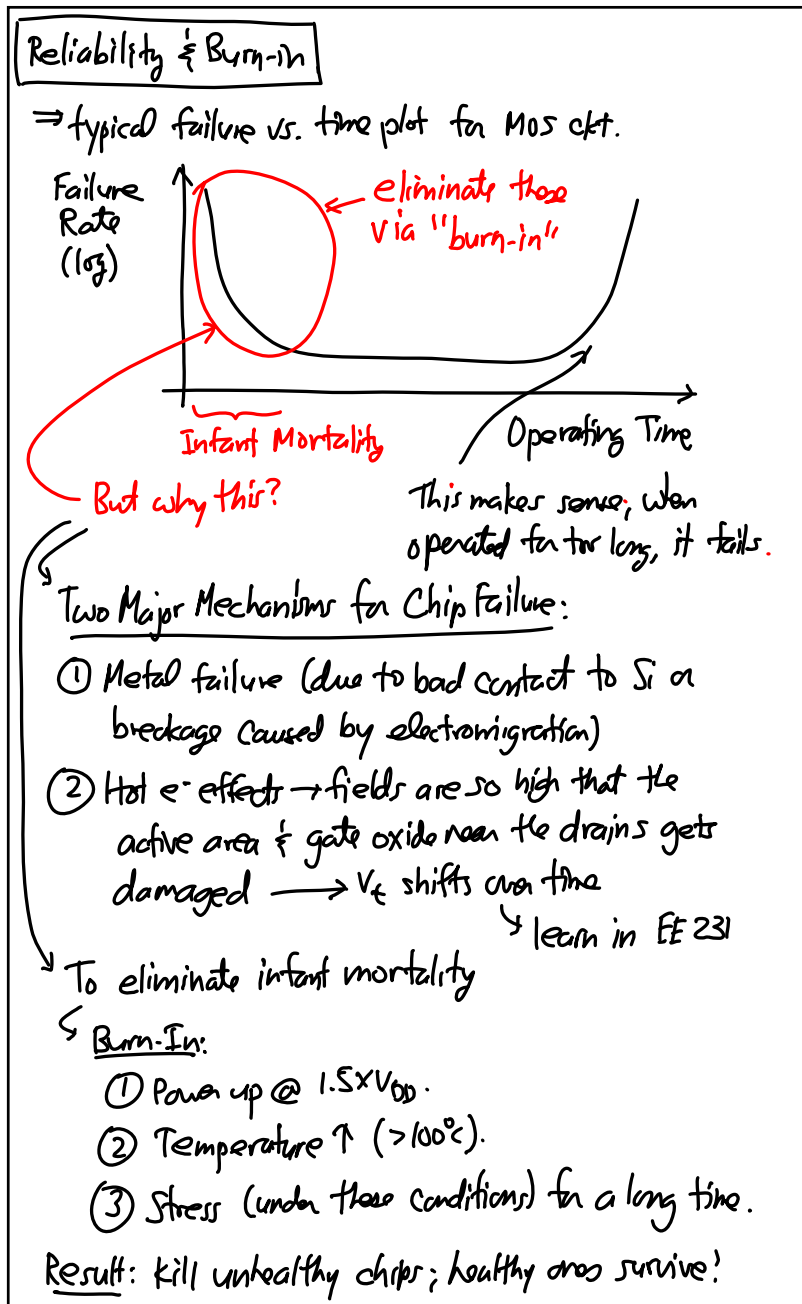 Reliability & Burn-in
⇒ typical failure vs. time plot for MOS ckt.
Failure
Rate
(log)
eliminate these
via "burn-in"
Infant Mortality
Operating Time
But why this?
This makes sense; when
operated for too long, it fails.
Two Major Mechanisms for Chip Failure:
① Metal failure (due to bad contact to Si or
breakage caused by electromigration)
② Hot e- effects → fields are so high that the
active area & gate oxide near the drains gets
damaged → Vt shifts over time
learn in EE 231
To eliminate infant mortality
Burn-In:
① Power up @ 1.5×VDD.
② Temperature ↑ (>100°C).
③ Stress (under these conditions) for a long time.
Result: kill unhealthy chips; healthy ones survive!